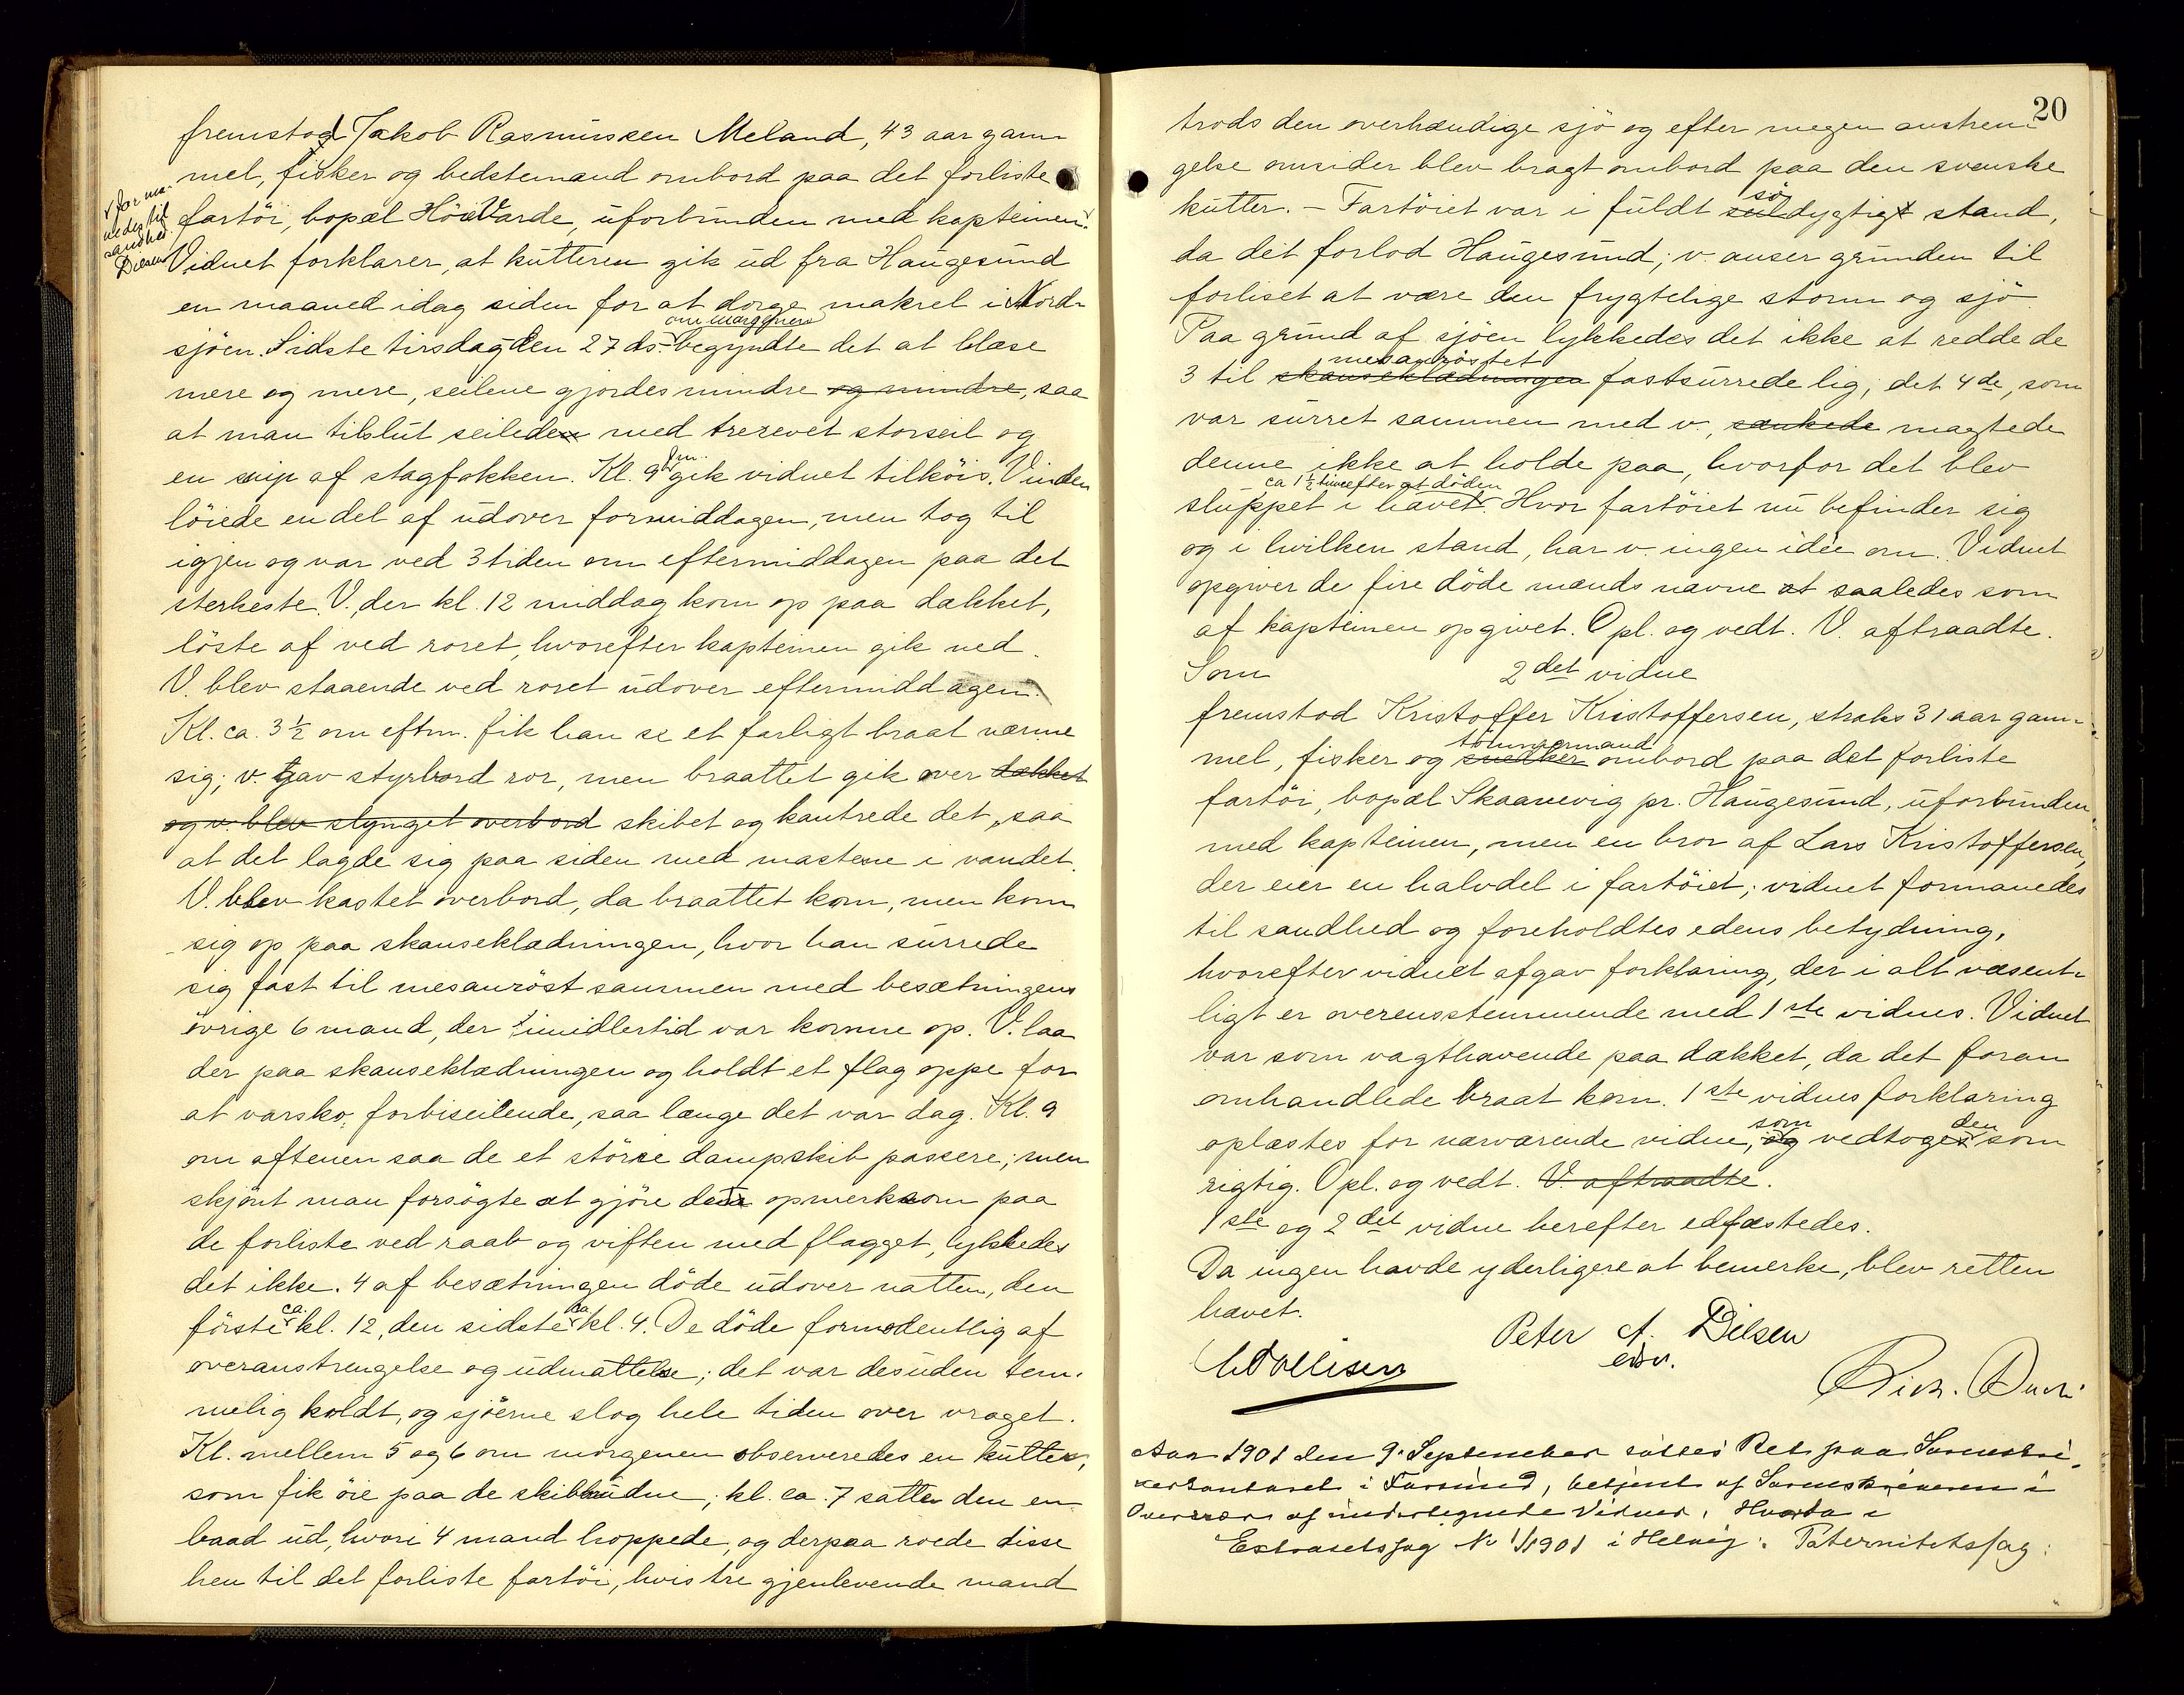 fremstod Jakob Rasmussen Meland, 43 aar gam-
mel, fisker og bedstemand ombord paa det forliste
fartöi, bopæl Hövarde, uforbunden med kapteinen.
v forma-
nedes til
sandhed.
Dilsen
Vidnet forklarer, at kutteren gik ud fra Haugesund
en maaned idag siden for at dorge makrel i Nord-
om morgenen
sjöen. Sidste tirsdag den 27 ds. begyndte det at blæse
mere og mere, seilene gjordes mindre og mindre, saa
at man tilslut seilede med trerevet storseil og
fm.
en snip af stagfokken. Kl. 9 gik vidnet tilköis. Vinden
löiede en del af udover formiddagen, men tog til
igjen og var ved 3 tiden om eftermiddagen paa det
sterkeste. V. der kl. 12 middag kom op paa dækket,
löste af ved roret, hvorefter kapteinen gik ned.
V. blev staaende ved roret udover eftermiddagen.
Kl. ca. 3½ om eftm. fik han se et farligt braat nærme
sig; v. gav styrbord ror, men braattet gik over dækket
og v. blev slynget overbord skibet og kantrede det, saa
at det lagde sig paa siden med masterne i vandet.
V. blev kastet overbord, da braattet kom, men kom
sig op paa skanseklædningen, hvor han surrede
sig fast til mesanröst sammen med besætningens
övrige 6 mand, der imidlertid var komne op. V. laa
der paa skanseklædningen og holdt et flag oppe for
at varsko forbiseilende, saa længe det var dag. Kl. 9
om aftenen saa de et större dampskib passere; men
skjönt man forsögte at gjöre dem opmerksom paa
de forliste ved raab og viften med flagget, lykkedes
det ikke. 4 af besætningen döde udover natten, den
ca. ca.
förste kl. 12, den sidste kl. 4. De döde formodentlig af
overanstrengelse og udmattelse; det var desuden tem-
melig koldt, og sjöerne slog hele tiden over vraget.
Kl. mellem 5 og 6 om morgenen observeredes en kutter,
som fik öie paa de skibbrudne; kl. ca. 7 satte den en
baad ud, hvori 4 mand hoppede, og derpaa roede disse
hen til det forliste fartöi, hvis tre gjenlevende mand
20
trods den overhændige sjö og efter megen anstren-
gelse omsider blev bragt ombord paa den svenske
sö
kutter. – Fartöiet var i fuldt seildygtigt stand,
da det forlod Haugesund; v. anser grunden til
forliset at være den frygtelige storm og sjö
Paa grund af sjöen lykkedes det ikke at redde de
mesanröstet
3 til skanseklædningen fastsurrede lig; det 4de, som
var surret sammen med v., sænkede magtede
denne ikke at holde paa, hvorfor det blev
ca 1½ time efter at döden
sluppet i havet. Hvor fartöiet nu befinder sig
og i hvilken stand, har v. ingen idée om. Vidnet
opgiver de fire döde mænds navne at saaledes som
af kapteinen opgivet. Opl. og vedt. V. aftraadte.
Som 2det vidne
fremstod Kristoffer Kristoffersen, straks 31 aar gam-
tömmermand
mel, fisker og snedker ombord paa det forliste
fartöi, bopæl Skaanevig pr. Haugesund, uforbunden
med kapteinen, men en bror af Lars Kristoffersen,
der eier en halvdel i fartöiet; vidnet formanedes
til sandhed og foreholdtes edens betydning,
hvorefter vidnet afgav forklaring, der i alt væsent-
ligt er overensstemmende med 1ste vidnes. Vidnet
var som vagthavende paa dækket, da det foran
omhandlede braat kom. 1ste vidnes forklaring
som den
oplæstes for nærværende vidne, og vedtoges som
rigtig. Opl. og vedt. V. aftraadte.
1ste og 2det vidne herefter edfæstedes.
Da ingen havde yderligere at bemerke, blev retten
hævet.
Peter A. Dilsen
edsv.
Aar 1901 den 9. September sattes Ret paa Sorenskri-
verkontoret i Farsund, betjent af Sorenskriveren i
Overvær af undertegnede Vidner. Hvorda i
Extraretssag No 1/1901 i Helvig: Paternitetssag: